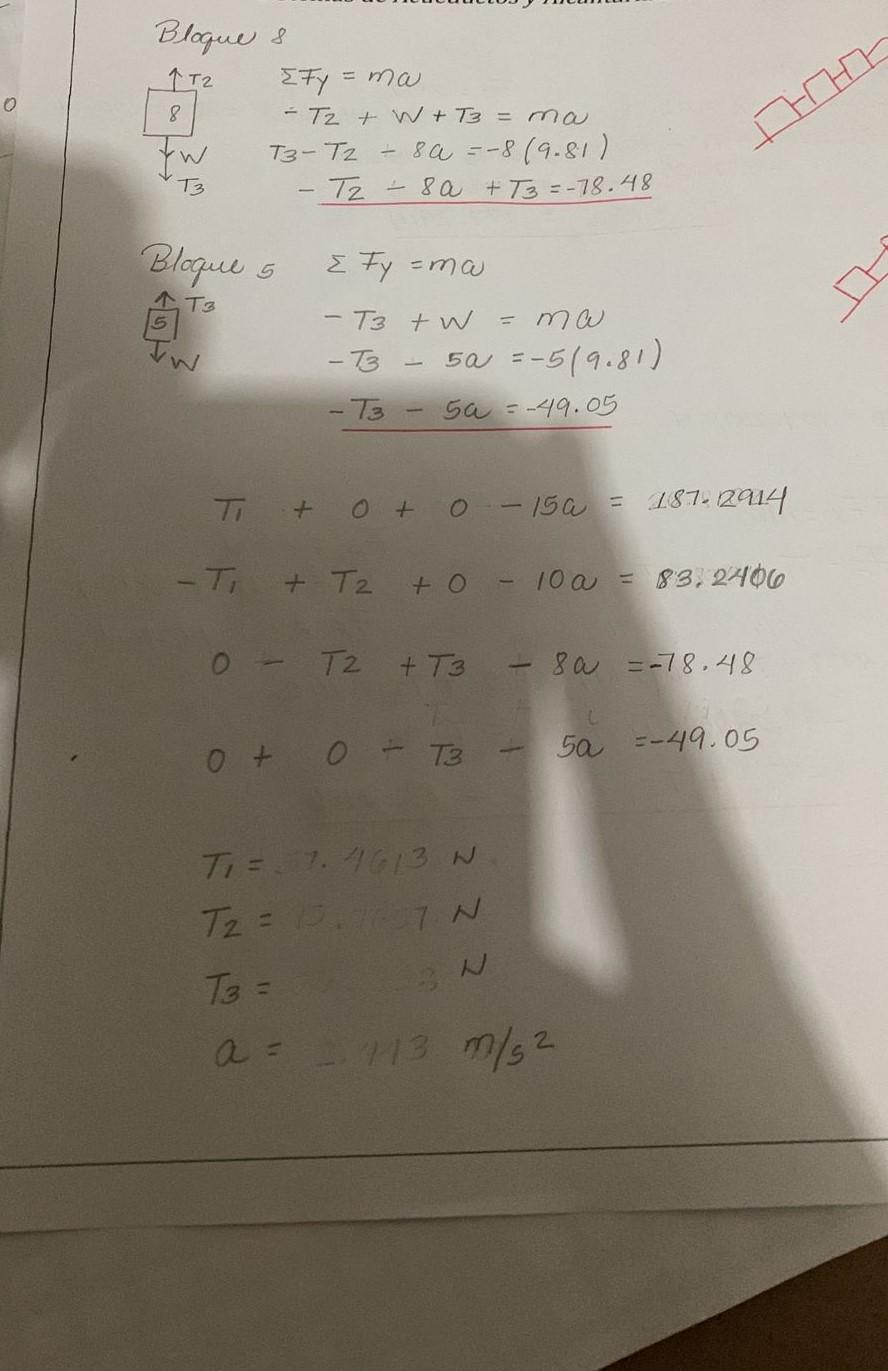 Bloque 8
↑T2
8
↓W
↓T3
ΣFy = ma
- T2 + W + T3 = ma
T3 - T2 - 8a = -8(9.81)
- T2 - 8a + T3 = -78.48
Bloque 5
↑T3
5
↓W
ΣFy = ma
- T3 + W = ma
- T3 - 5a = -5(9.81)
- T3 - 5a = -49.05
T1 + 0 + 0 - 15a = 187.2914
- T1 + T2 + 0 - 10a = 83.2406
0 - T2 + T3 - 8a = -78.48
0 + 0 - T3 - 5a = -49.05
T1 = N
T2 = N
T3 = N
a = m/s2